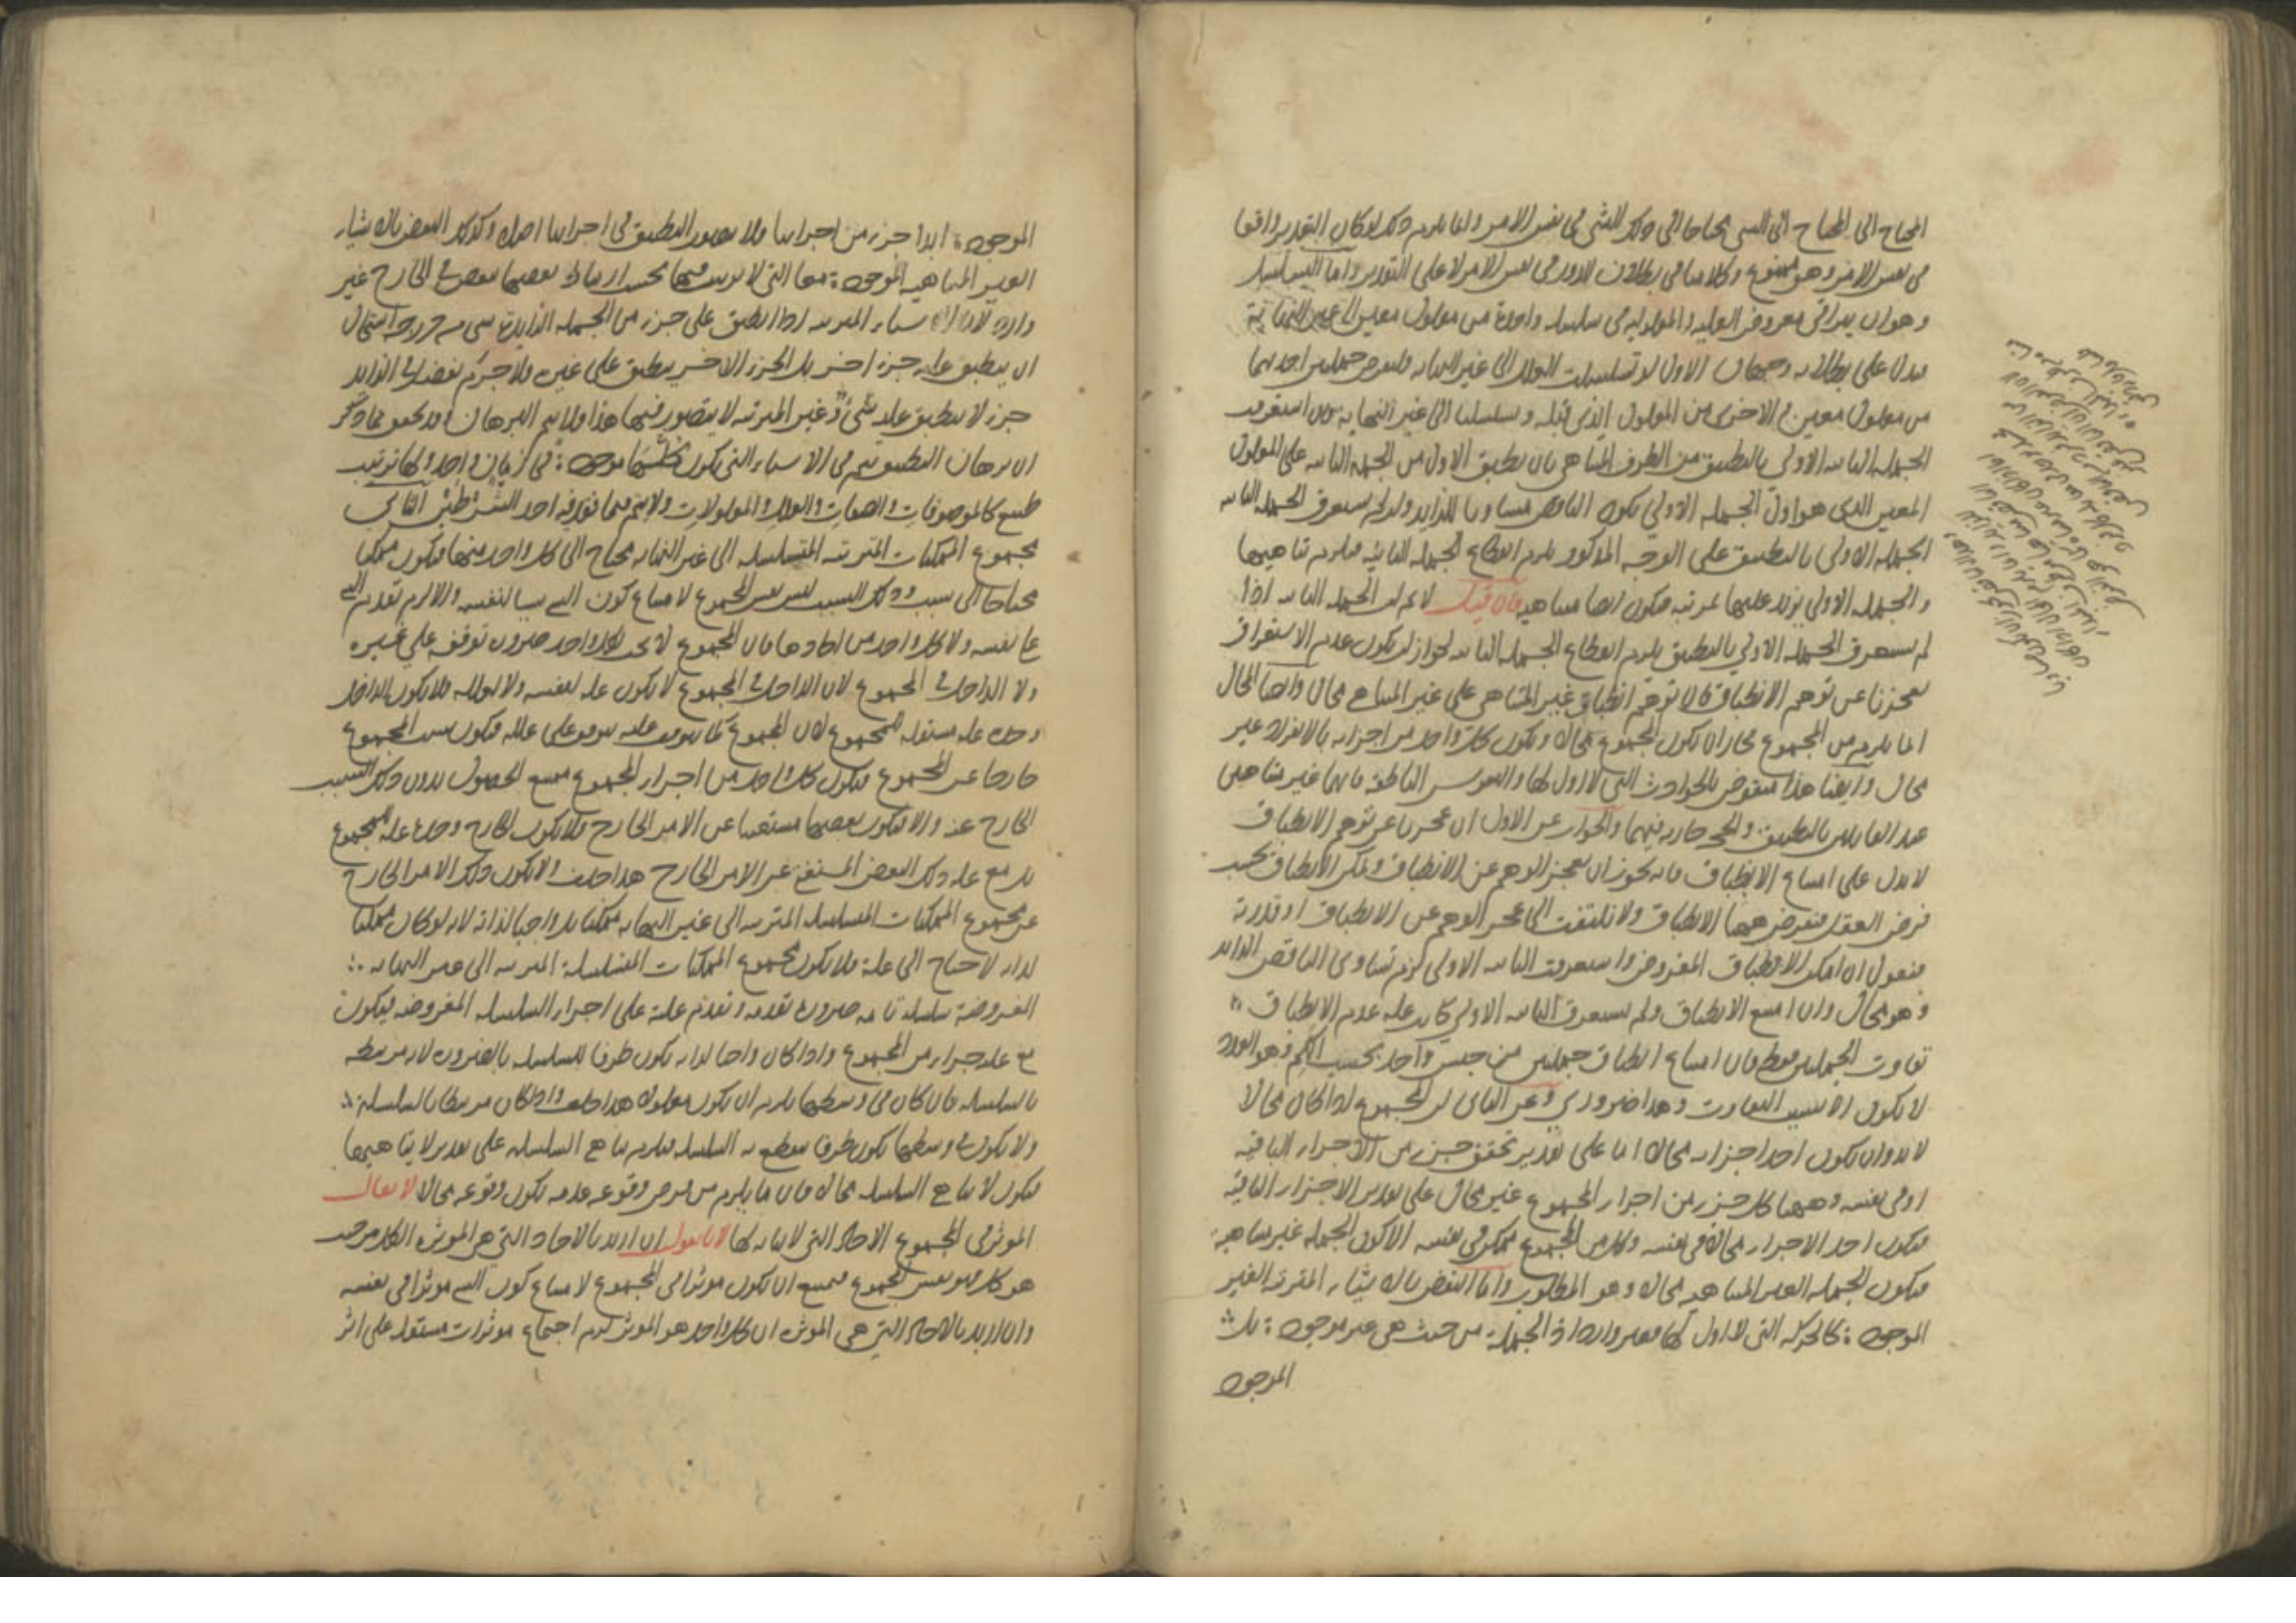 المحتاج الى المحتاج الى الشي محتاجا الى ذلك الشي في نفس الامر وانما يلزم ذلك لو كان التقدير واقعا
في نفس الامر وهو ممنوع وكلامنا في بطلان الدور في نفس الامر لا على التقدير واما التسلسل
وهو ان يتراقى معروض العلية والمعلولية في سلسلة واحدة من معلول معين الى غير النهاية
فيدل على بطلانه وجهان الاول لو تسلسلت العلل الى غير النهاية ولنفرض جملتين احديهما
من معلول معين والاخرى من المعلول الذي قبله وتسلسلتا الى غير النهاية فان استغرقت
الجملة الثانية الاولى بالتطبيق من الطرف المتناهي بان يطبق الاول من الجملة الثانية على المعلول
المعين الذي هو اول الجملة الاولى يكون الناقص مساويا للزايد وان لم يستغرق الجملة الثانية
الجملة الاولى بالتطبيق على الوجه المذكور يلزم انقطاع الجملة الثانية فيلزم تناهيهما
والجملة الاولى يزيد عليها بمرتبة فيكون ايضا متناهية فان قيل لا نم ان الجملة الثانية اذا
لم يستغرق الجملة الاولى بالتطبيق يلزم انقطاع الجملة الثانية لجواز ان يكون عدم الاستغراق
لعجزنا عن توهم الانطباق فان توهم انطباق غير المتناهي على غير المتناهي محال وايضا المحال
انما يلزم من المجموع فجاز ان يكون المجموع محالا ويكون كل واحد من اجزايه بالانفراد غير
محال وايضا هذا منقوض بالحوادث التي لا اول لها والنفوس الناطقة فانها غير متناهية
عند القايلين بالتطبيق والحجة جارية فيهما والجواب عن الاول ان عجزنا عن توهم الانطباق
لا يدل على امتناع الانطباق فانه يجوز ان يعجز الوهم عن الانطباق ويمكن الانطباق بحسب
فرض العقل فنفرض ههنا الانطباق ولا نلتفت الى عجز الوهم عن الانطباق او قدرته
فنقول ان امكن الانطباق المفروض واستغرقت الثانية الاولى لزم تساوي الناقص الزايد
وهو محال وان امتنع الانطباق ولم يستغرق الثانية الاولى كانت علة عدم الانطباق
تفاوت الجملتين فقط فان امتناع انطباق جملتين من جنس واحد بحسب الكم وهو العدد
لا يكون الا بسبب التفاوت وهذا ضروري وعن الثاني ان المجموع اذا كان محالا
لا بد وان يكون احد اجزايه محالا اما على تقدير تحقق جزء من الاجزاء الباقية
او في نفسه وههنا كل جزء من اجزاء المجموع غير محال على تقدير الاجزاء الباقية
فيكون احد الاجزاء محالا في نفسه وكل من المجموع ممكن في نفسه الا كون الجملة غير متناهية
فيكون الجملة الغير المتناهية محالا وهو المطلوب واما النقض بالاشياء المترتبة الغير
الموجودة كالحركة التي لا اول لها فغير وارد اذ الجملة من حيث هي غير موجودة بل
الموجود
الموجودة ابدا جزء من اجزايها ولا يتصور التطبيق في اجزايها اصلا وكذلك النقض بالاشياء
الغير المتناهية الموجودة معا التي لا ترتب فيها بحسب ارتباط بعضها ببعض في الخارج غير
وارد لان الاشياء المترتبة اذا انطبق على جزء من الجملة الزايدة شي من درجة استحال
ان ينطبق عليه جزء اخر بل الجزء الاخر ينطبق على غيره فلا جرم يفضل في الزايد
جزء لا ينطبق عليه شي وغير المترتبة لا يتصور فيها هذا ولا يتم البرهان وقد تحقق مما ذكر
ان برهان التطبيق يتم في الاشياء التي يكون كلها موجودة في زمان واحد ولها ترتيب
طبيعي كالموصوفات والصفات والعلل والمعلولات ولا يتم فيما يفقد فيه احد الشرطين الثاني
مجموع الممكنات المترتبة المتسلسلة الى غير النهاية محتاج الى كل واحد منها فيكون ممكنا
محتاجا الى سبب وذلك السبب ليس نفس المجموع لامتناع كون الشي سببا لنفسه والا لزم تقدم الشي
على نفسه ولا كل واحد من احادها فان المجموع لا يجب بكل واحد ضرورة توقفه على غيره
ولا الداخل في المجموع لان الداخل في المجموع لا يكون علة لنفسه ولا لعلله فلا يكون الداخل
وحده علة مستقلة للمجموع لان المجموع كما يتوقف عليه يتوقف على علله فيكون سبب المجموع
خارجا عن المجموع فيكون كل واحد من اجزاء المجموع ممتنع الحصول بدون ذلك السبب
الخارج عنه والا فيكون بعضها مستغنيا عن الامر الخارج فلا يكون الخارج وحده علة للمجموع
بل مع علة ذلك البعض المستغني عن الامر الخارج هذا خلف ولا يكون ذلك الامر الخارج
عن مجموع الممكنات المتسلسلة المترتبة الى غير النهاية ممكنا بل واجبا لذاته لانه لو كان ممكنا
لذاته لاحتاج الى علة فلا يكون مجموع الممكنات المتسلسلة المترتبة الى غير النهاية
المفروضة سلسلة تامة ضرورة تقدمه وتقدم علته على اجزاء السلسلة المفروضة فيكون
مع علته جزاء من المجموع واذا كان واجبا لذاته يكون طرفا للسلسلة بالضرورة لانه مرتبط
بالسلسلة فان كان في وسطها يلزم ان يكون معلولا هذا خلف واذا كان مرتبطا بالسلسلة
ولا يكون في وسطها يكون طرفا ينقطع به السلسلة فيلزم تناهي السلسلة على تقدير لا تناهيها
فيكون لا تناهي السلسلة محالا فان ما يلزم من فرض وقوعه عدمه يكون وقوعه محالا لا يقال
الموثر في المجموع الاحاد التي لا نهاية لها لانا نقول ان اريد بالاحاد التي هي الموثرة الكل من حيث
هو كل فهو نفس المجموع فيمتنع ان يكون موثرا في المجموع لامتناع كون الشي موثرا في نفسه
وان اريد بالاحاد التي هي الموثرة ان كل واحد هو الموثر لزم اجتماع موثرات مستقلة على اثر